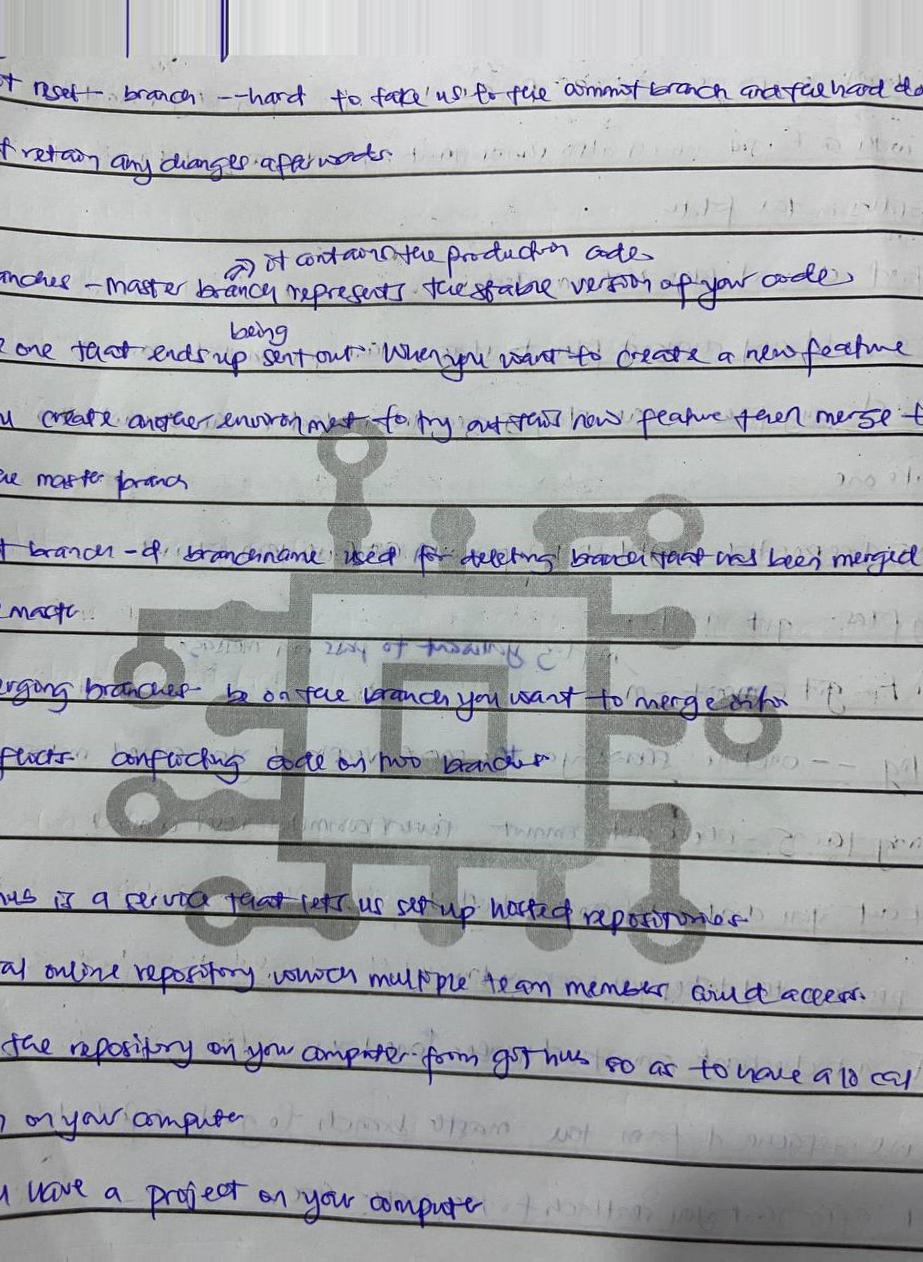 reset branch --hard to take us to the commit branch and the hard do
retain any changes afterwards.
it contains the production code
anches - master branch represents the stable version of your code
being
one that ends up sent out. When you want to create a new feature
u create another environment to try out this new feature then merge t
he master branch
t branch -d branchname used for deleting branch that has been merged
erging branches be on the branch you want to merge onto
flicts conflicting code on two branches
hub is a service that lets us set up hosted repositories
al online repository which multiple team members could access.
the repository on your computer from git hub so as to have a local
on your computer
u have a project on your computer